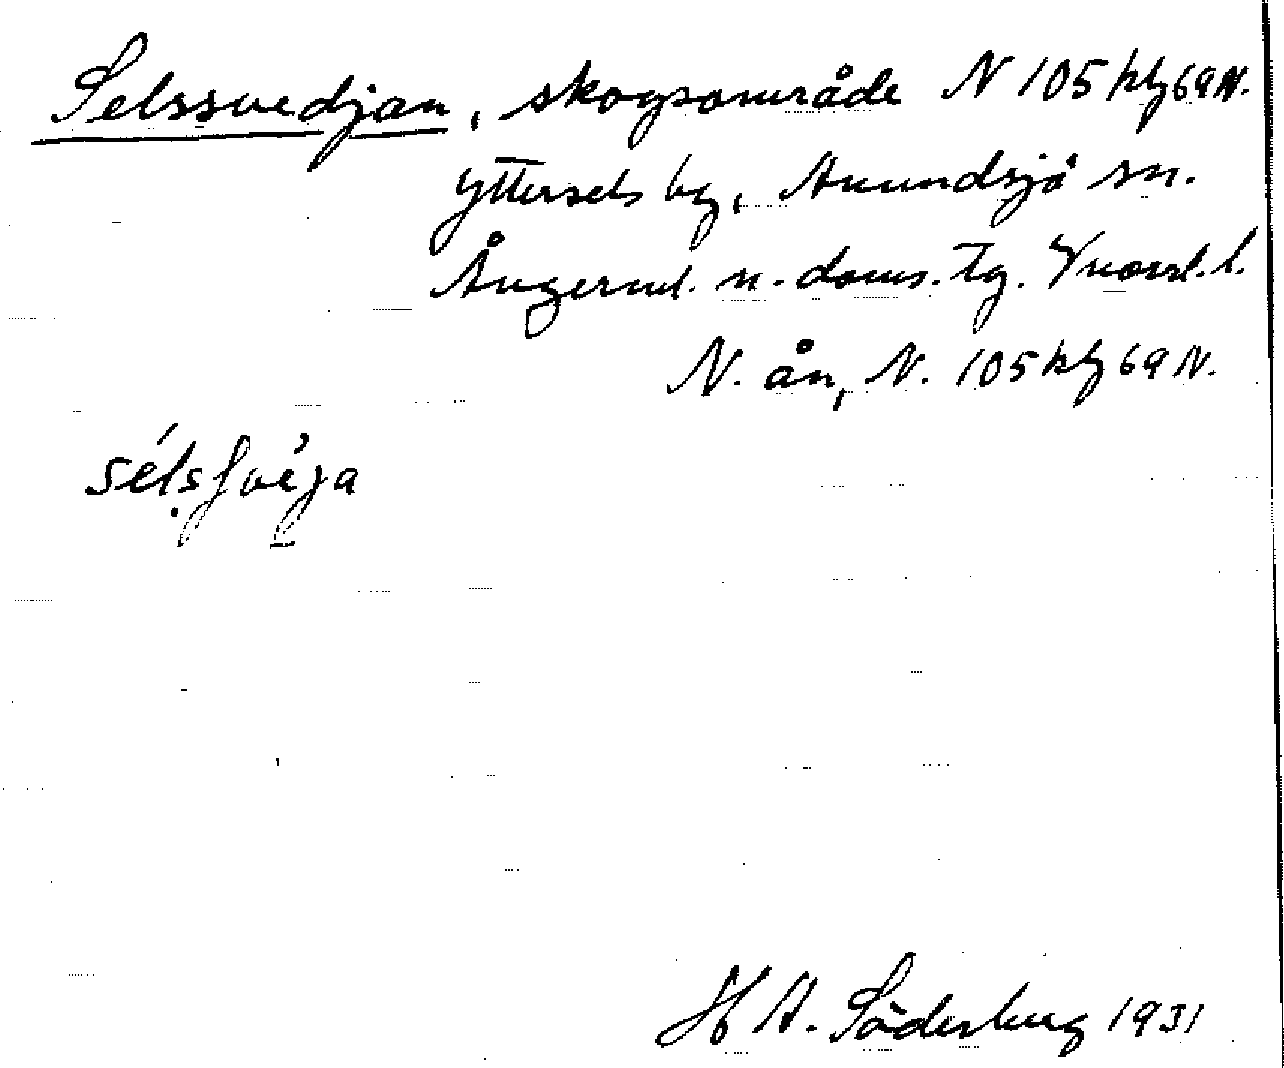 Selssvedjan, skogsområde N 105 kbg 69 N.
Yttersels by, Anundsjö sn.
Ångerml. n. doms. tg. Vnorrl. l.
N. ån, N. 105 kbg 69 N.
H A. Söderberg 1931